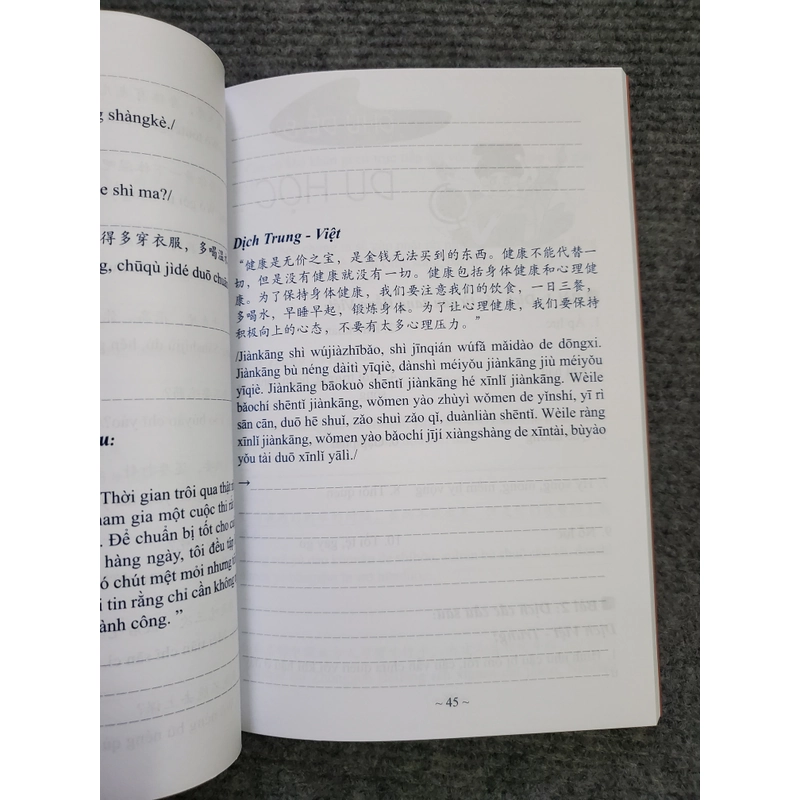 g shàngkè./
e shì ma?/
得多穿衣服，多喝温
ng, chūqù jìdé duō chuān
u:
Thời gian trôi qua thật
ham gia một cuộc thi
. Để chuẩn bị tốt cho
hàng ngày, tôi đều tập
ó chút mệt mỏi nhưng
i tin rằng chỉ cần không
ành công. ”
DU HỌC
Dịch Trung - Việt
“健康是无价之宝，是金钱无法买到的东西。健康不能代替一
切，但是没有健康就没有一切。健康包括身体健康和心理健
康。为了保持身体健康，我们要注意我们的饮食，一日三餐，
多喝水，早睡早起，锻炼身体。为了让心理健康，我们要保持
积极向上的心态，不要有太多心理压力。”
/Jiànkāng shì wújiàzhībǎo, shì jīnqián wúfǎ mǎidào de dōngxi.
Jiànkāng bù néng dàitì yīqiè, dànshì méiyǒu jiànkāng jiù méiyǒu
yīqiè. Jiànkāng bāokuò shēntǐ jiànkāng hé xīnlǐ jiànkāng. Wèile
bǎochí shēntǐ jiànkāng, wǒmen yào zhùyì wǒmen de yǐnshí, yī rì
sān cān, duō hē shuǐ, zǎo shuì zǎo qǐ, duànliàn shēntǐ. Wèile ràng
xīnlǐ jiànkāng, wǒmen yào bǎochí jījí xiàngshàng de xīntài, bùyào
yǒu tài duō xīnlǐ yālì./
→
~ 45 ~